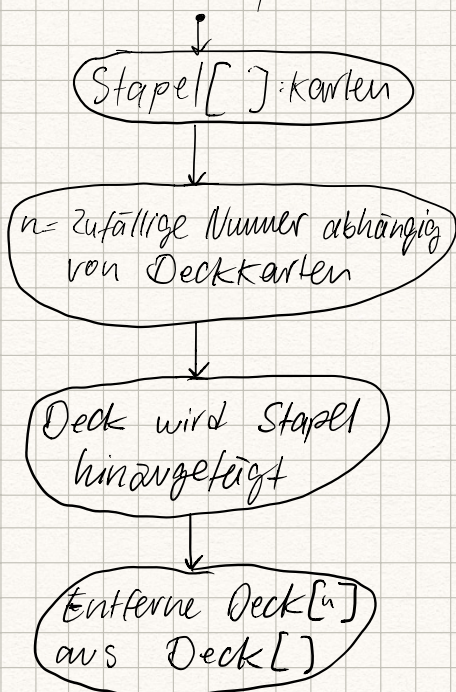 Stapel[ ]:karten
n= zufällige Nummer abhängig
von Deckkarten
Deck wird Stapel
hinzugefügt
Entferne Deck[n]
aus Deck[ ]